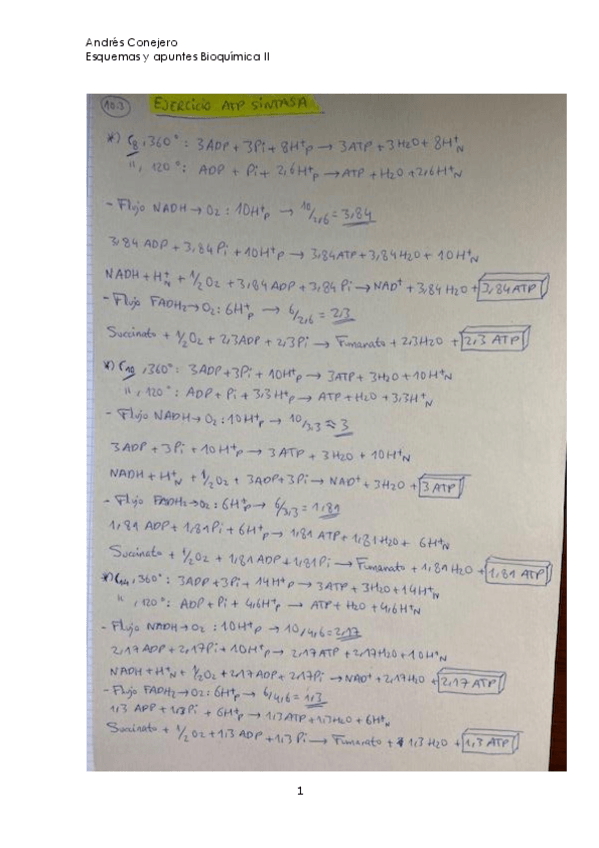 Andrés Conejero
Esquemas y apuntes Bioquímica II
10.3 EJERCICIO ATP SINTASA
*) C8, 360°: 3ADP + 3Pi + 8H⁺P → 3ATP + 3H2O + 8H⁺N
", 120°: ADP + Pi + 2,6H⁺P → ATP + H2O + 2,6H⁺N
- Flujo NADH → O2: 10H⁺P → 10/2,6 = 3,84
3,84 ADP + 3,84 Pi + 10H⁺P → 3,84 ATP + 3,84 H2O + 10H⁺N
NADH + H⁺N + 1/2 O2 + 3,84 ADP + 3,84 Pi → NAD⁺ + 3,84 H2O + 3,84 ATP
- Flujo FADH2 → O2: 6H⁺P → 6/2,6 = 2,3
Succinato + 1/2 O2 + 2,3 ADP + 2,3 Pi → Fumarato + 2,3 H2O + 2,3 ATP
*) C10, 360°: 3ADP + 3Pi + 10H⁺P → 3ATP + 3H2O + 10H⁺N
", 120°: ADP + Pi + 3,3H⁺P → ATP + H2O + 3,3H⁺N
- Flujo NADH → O2: 10H⁺P → 10/3,3 ≈ 3
3ADP + 3Pi + 10H⁺P → 3ATP + 3H2O + 10H⁺N
NADH + H⁺N + 1/2 O2 + 3ADP + 3Pi → NAD⁺ + 3H2O + 3 ATP
- Flujo FADH2 → O2: 6H⁺P → 6/3,3 = 1,81
1,81 ADP + 1,81 Pi + 6H⁺P → 1,81 ATP + 1,81 H2O + 6H⁺N
Succinato + 1/2 O2 + 1,81 ADP + 1,81 Pi → Fumarato + 1,81 H2O + 1,81 ATP
*) C14, 360°: 3ADP + 3Pi + 14H⁺P → 3ATP + 3H2O + 14H⁺N
", 120°: ADP + Pi + 4,6H⁺P → ATP + H2O + 4,6H⁺N
- Flujo NADH → O2: 10H⁺P → 10/4,6 = 2,17
2,17 ADP + 2,17 Pi + 10H⁺P → 2,17 ATP + 2,17 H2O + 10H⁺N
NADH + H⁺N + 1/2 O2 + 2,17 ADP + 2,17 Pi → NAD⁺ + 2,17 H2O + 2,17 ATP
- Flujo FADH2 → O2: 6H⁺P → 6/4,6 = 1,3
1,3 ADP + 1,3 Pi + 6H⁺P → 1,3 ATP + 1,3 H2O + 6H⁺N
Succinato + 1/2 O2 + 1,3 ADP + 1,3 Pi → Fumarato + 1,3 H2O + 1,3 ATP
1